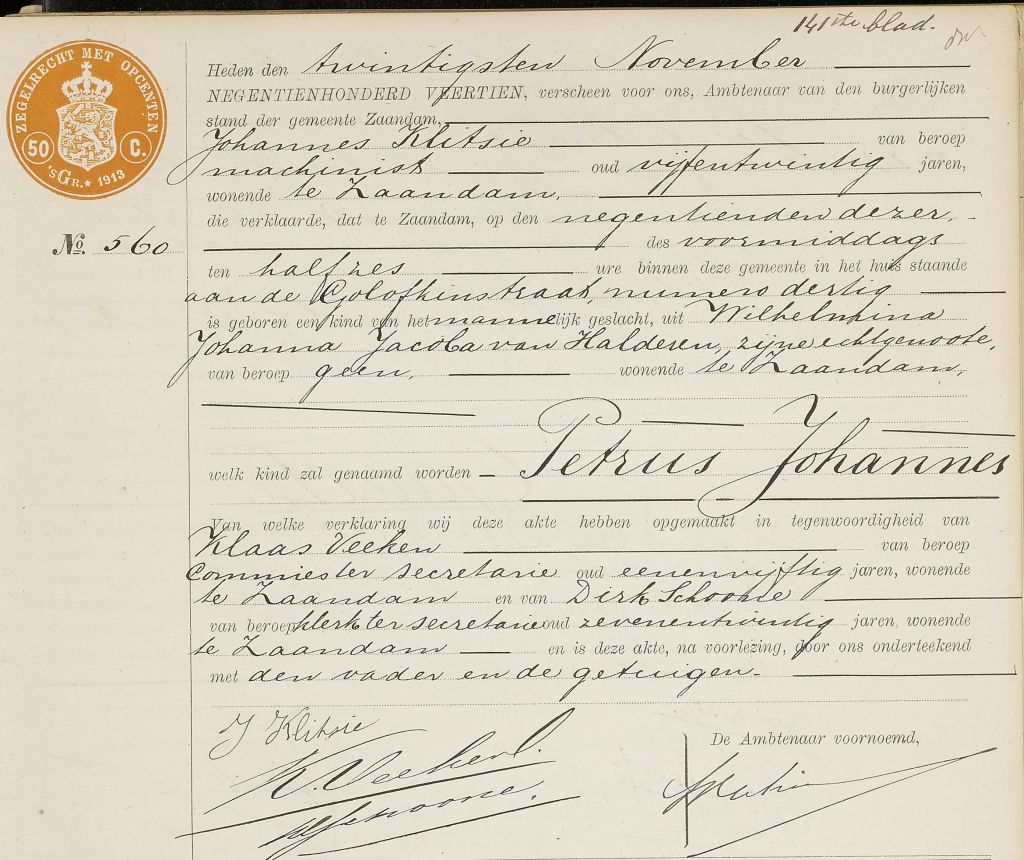 141ste blad.
ZEGELRECHT MET OPCENTEN
50 C.
'sGr. * 1913
Heden den twintigsten November
NEGENTIENHONDERD VEERTIEN, verscheen voor ons, Ambtenaar van den burgerlijken
stand der gemeente Zaandam,
Johannes Klitsie van beroep
machinist oud vijfentwintig jaren,
wonende te Zaandam,
die verklaarde, dat te Zaandam, op den negentienden dezer,
No. 560
des voormiddags
ten half zes ure binnen deze gemeente in het huis staande
aan de Golofkinstraat, numero dertig
is geboren een kind van het mannelijk geslacht, uit Wilhelmina
Johanna Jacoba van Halderen, zijne echtgenoote,
van beroep geen, wonende te Zaandam,
welk kind zal genaamd worden Petrus Johannes
Van welke verklaring wij deze akte hebben opgemaakt in tegenwoordigheid van
Klaas Veeken van beroep
Commies ter secretarie oud eenenvijftig jaren, wonende
te Zaandam en van Dirk Schoone
van beroep klerk ter secretarie oud zevenentwintig jaren, wonende
te Zaandam en is deze akte, na voorlezing, door ons onderteekend
met den vader en de getuigen.
J Klitsie
De Ambtenaar voornoemd,
K. Veeken
Schoone.